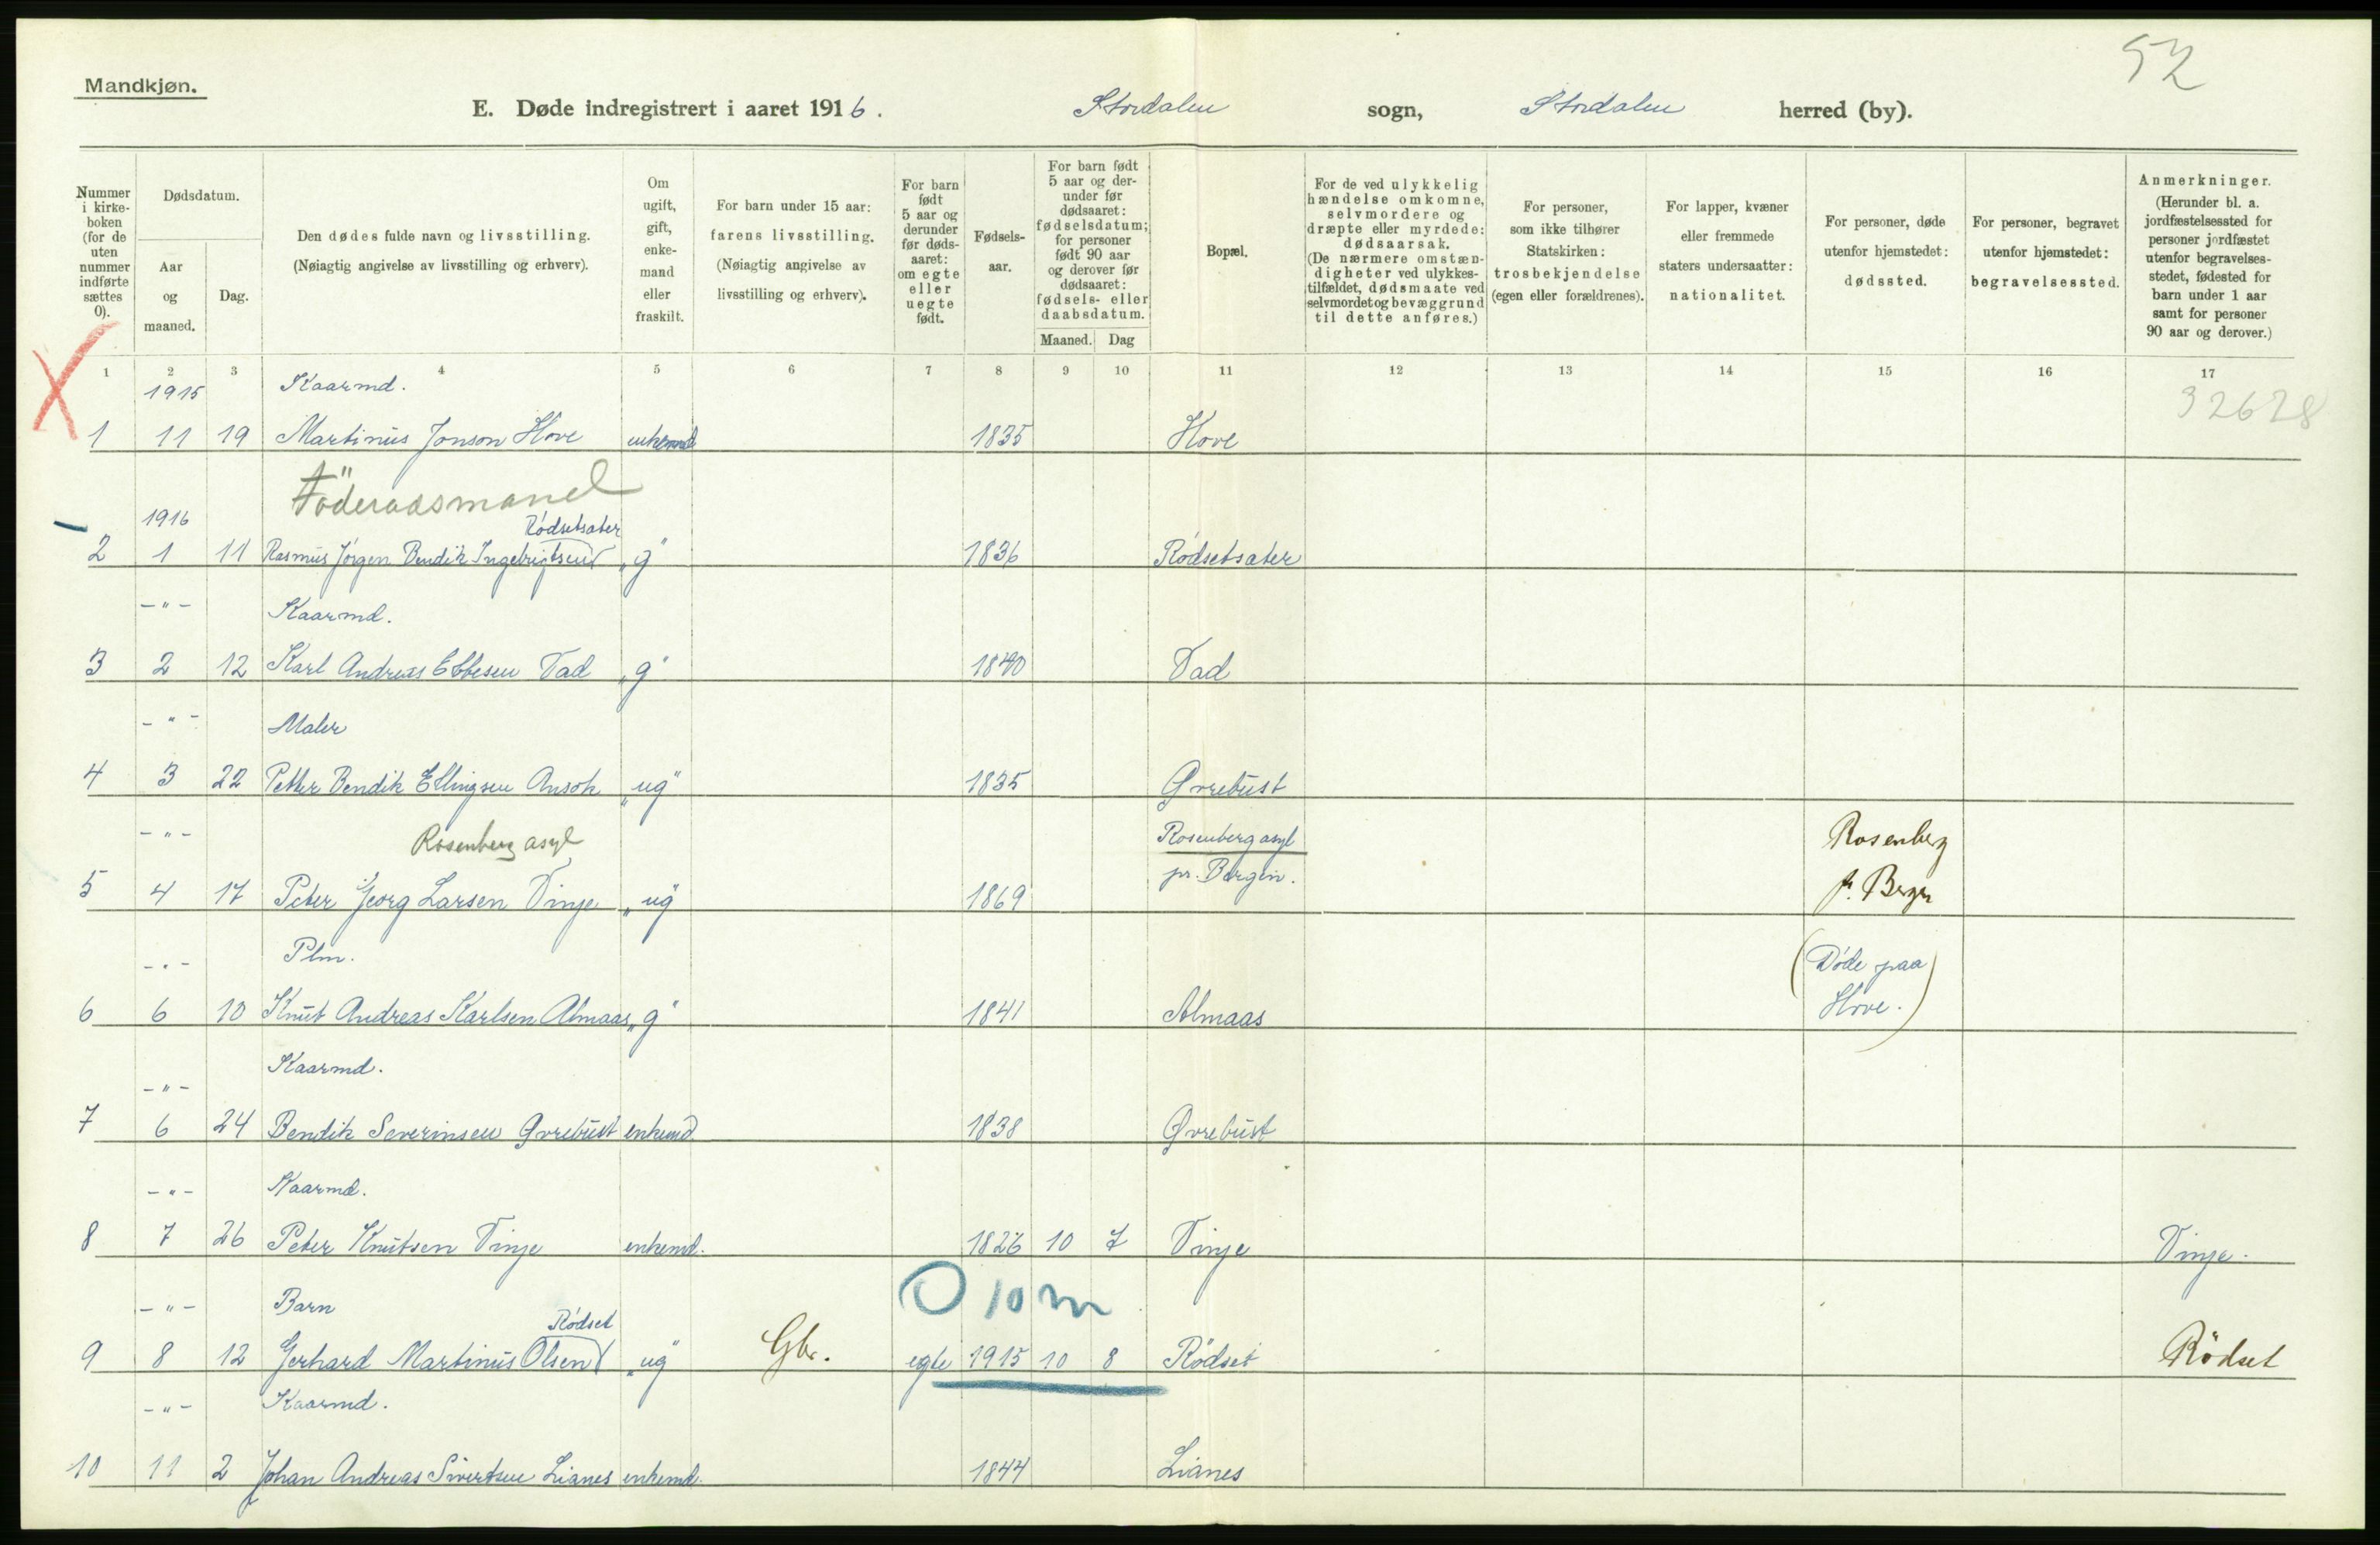 52
Mandkjøn.
E. Døde indregistrert i aaret 1916. Stordalen sogn, Stordalen herred (by).
Nummer i kirkeboken (for de uten nummer indførte sættes 0).
Dødsdatum.
Aar og maaned.
Dag.
Den dødes fulde navn og livsstilling.
(Nøiagtig angivelse av livsstilling og erhverv).
Om ugift, gift, enkemand eller fraskilt.
For barn under 15 aar: farens livsstilling.
(Nøiagtig angivelse av livsstilling og erhverv).
For barn født 5 aar og derunder før dødsaaret: om egte eller uegte født.
Fødselsaar.
For barn født 5 aar og derunder før dødsaaret: fødselsdatum; for personer født 90 aar og derover før dødsaaret: fødsels- eller daabsdatum.
Maaned. Dag
Bopæl.
For de ved ulykkelig hændelse omkomne, selvmordere og dræpte eller myrdede: dødsaarsak.
(De nærmere omstændigheter ved ulykkestilfældet, dødsmaate ved selvmordet og bevæggrund til dette anføres.)
For personer, som ikke tilhører Statskirken: trosbekjendelse (egen eller forældrenes).
For lapper, kvæner eller fremmede staters undersaatter: nationalitet.
For personer, døde utenfor hjemstedet: dødssted.
For personer, begravet utenfor hjemstedet: begravelsessted.
Anmerkninger.
(Herunder bl. a. jordfæstelsessted for personer jordfæstet utenfor begravelsesstedet, fødested for barn under 1 aar samt for personer 90 aar og derover.)
1 2 3 4 5 6 7 8 9 10 11 12 13 14 15 16 17
1915 Kaarmd. 32628
1 11 19 Martinus Jonson Hove enkemd 1835 Hove
Föderaasmand
1916 Rödsetsater
2 1 11 Rasmus Jörgen Bendik Ingebrigtsen "g" 1836 Rödsetsater
-"- Kaarmd.
3 2 12 Karl Andreas Ebbesen Vad "g" 1840 Vad
-"- Maler
4 3 22 Petter Bendik Ellingsen Ansok "ug" 1835 Øvrebust
-"- Rosenberg asyl Rosenberg asyl Rosenberg
pr. Bergen. p. Bergen
5 4 17 Peter Georg Larsen Vinje "ug" 1869
-"- Plm. (Døde paa
6 6 10 Knut Andreas Karlsen Almaas "g" 1841 Almaas Hove.)
-"- Kaarmd.
7 6 24 Bendik Severinsen Øvrebust enkemd 1838 Øvrebust
-"- Kaarmd.
8 7 26 Peter Knutsen Vinje enkemd. 1826 10 7 Vinje Vinje.
-"- Barn Rödset 0 10 m
9 8 12 Gerhard Martinus Olsen "ug" Gbr. egte 1915 10 8 Rödset Rödset
-"- Kaarmd.
10 11 2 Johan Andreas Sivertsen Lianes enkemd. 1844 Lianes